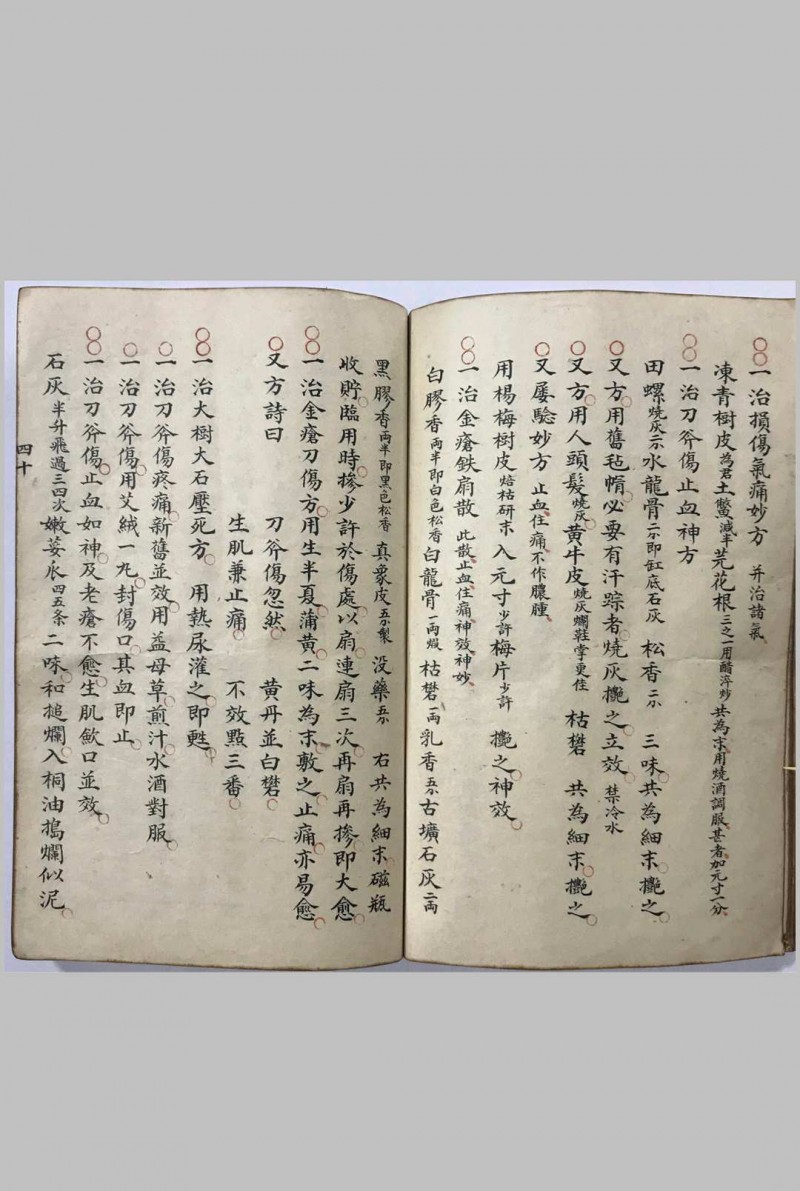 一治損傷氣痛妙方 并治諸氣
凍青樹皮為君土鱉減半芫花根三之一用醋淬炒共為末用燒酒調服甚者加元寸一分
一治刀斧傷止血神方
田螺燒灰二小水龍骨二小即缸底石灰 松香二小 三味共為細末攡之
又方用舊毡帽必要有汗踪者燒灰攡之立效禁冷水
又方用人頭髮燒灰黄牛皮燒灰爛鞋掌更佳 枯礬 共為細末攡之
又屢驗妙方 止血住痛不作膿腫
用楊梅樹皮焙枯研末入元寸少許梅片少許 攡之神效
一治金瘡鉄扇散 此散止血住痛神效神妙
白膠香両半即白色松香白龍骨一両煅 枯礬一両乳香五分古壙石灰二両
黑膠香両半即黑色松香 真象皮五分製 没藥五分 右共為細末磁瓶
收貯臨用時摻少許於傷處以扇連扇三次再扇再摻即大愈
一治金瘡刀傷方用生半夏蒲黄二味為末敷之止痛亦易愈
又方詩曰 刀斧傷忽然 黄丹並白礬
生肌兼止痛 不效點三番
一治大樹大石壓死方 用熱尿灌之即甦
一治刀斧傷疼痛新舊並效用益母草煎汁水酒對服
一治刀斧傷用艾絨一丸封傷口其血即止
一治刀斧傷止血如神及老瘡不愈生肌歛口並效
石灰半升飛過三四次嫩蒌瓜四五条二味和搥爛入桐油搗爛似泥
四十